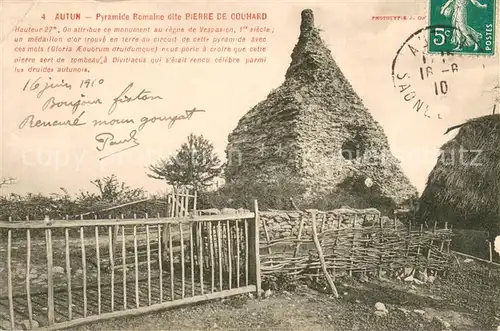 4 AUTUN — Pyramide Romaine dite PIERRE DE COUHARD
PHOTOTYPIE J. C
Hauteur 27m. On attribue ce monument au règne de Vespasien, 1er siècle;
un médaillon d'or trouvé en terre au circuit de cette pyramide avec
ces mots (Gloria Æduorum druidumque) nous porte à croire que cette
pierre sert de tombeau à Divitiacus qui s'était rendu célèbre parmi
les druides autunois.
5c
16 juin 1910
Bonjour
Paul
AUTUN
16-6
10
SAONE